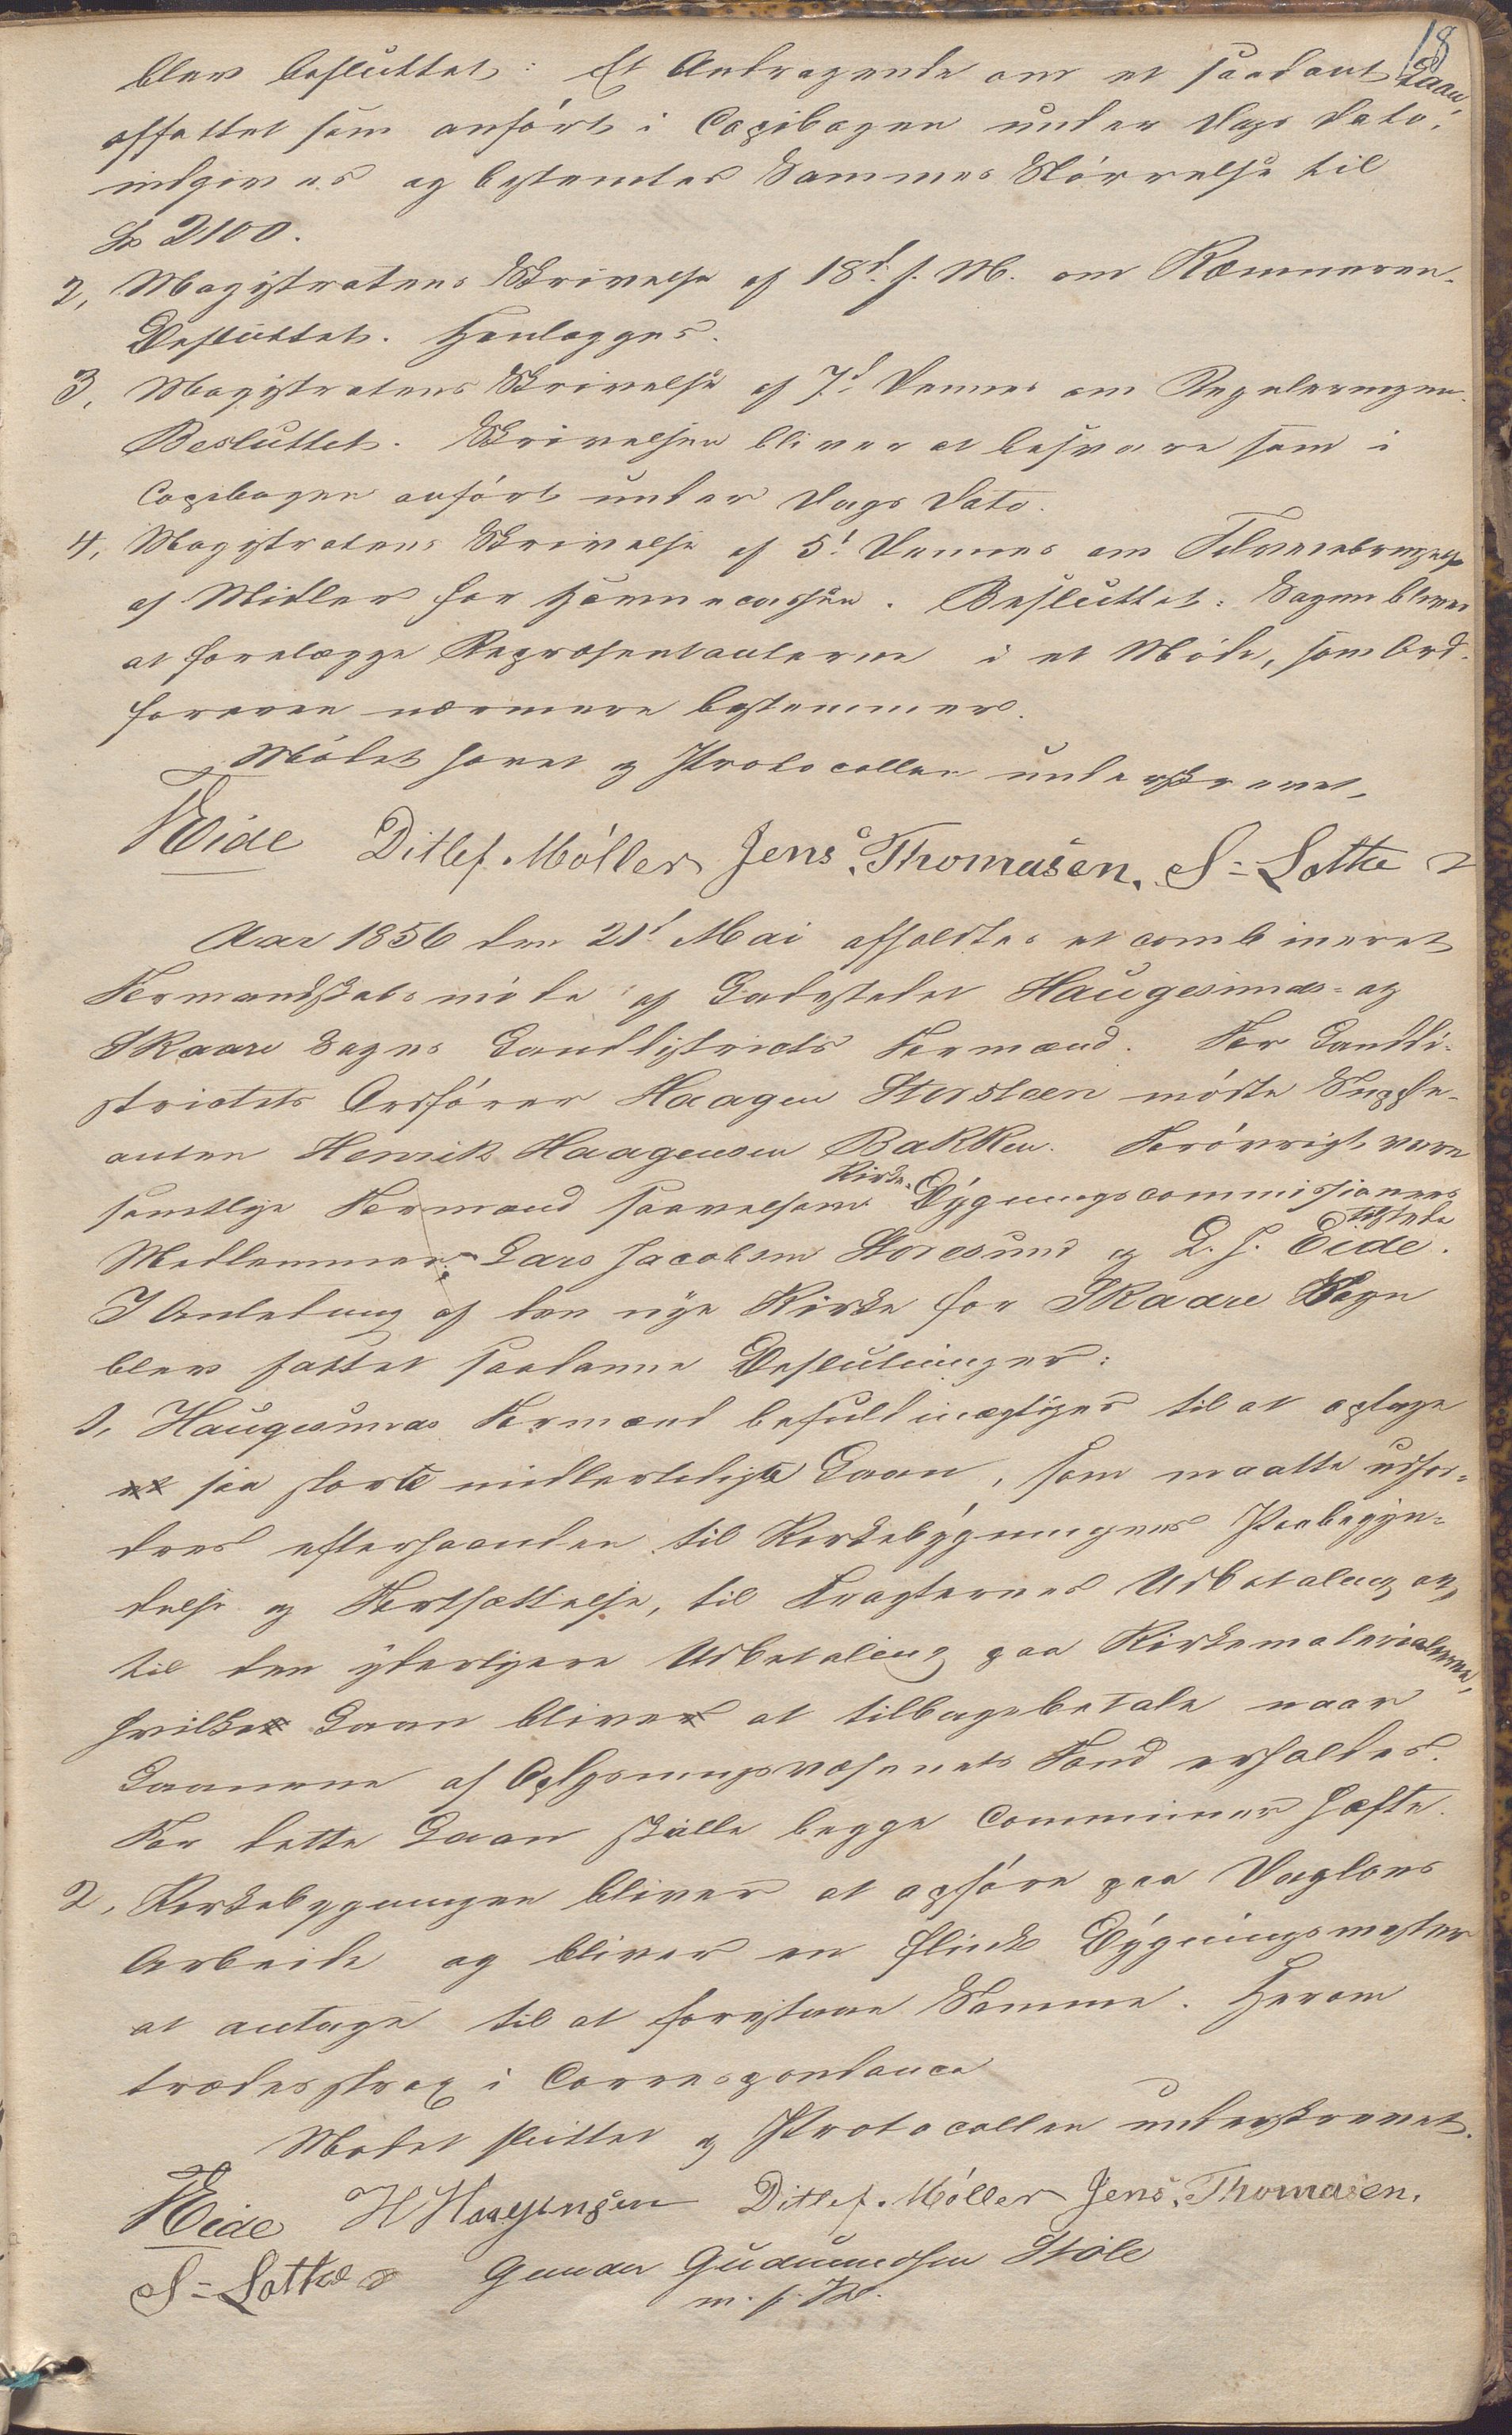 18
blev besluttet: Et Andragende om et saadant Laan,
affattet som anført i Copibogen under Dags Dato,
indgives og bestemtes Sammes Størrelse til
2100.
2, Magistratens Skrivelse af 18d. f. M. om Kæmneren.
Besluttet. Henlægges.
3, Magistratens Skrivelse af 7d. Dennes om Reguleringen.
Besluttet. Skrivelsen bliver at besvare som i
Copibogen anført under Dags Dato.
4, Magistratens Skrivelse af 5d. Dennes om Tilveiebringelse
af Midler for Havnecassen. Besluttet: Sagen bliver
at forelægge Repræsentanterne i et Møde, som Ord-
føreren nærmere bestemmer.
Mødet hævet og Protocollen underskrevet,
Eide Ditlef. Möller Jens. Thomasen. S= Lothe
Aar 1856 den 21d. Mai afholdtes et combineret
Formandskabsmøde af Ladestedet Haugesunds= og
Skaare Sogns Landdistricts Formænd. For Landdi-
strictets Ordfører Haagen Storsteen mødte Supple-
anten Henrik Haagensen Bakken. Forøvrigt vare
samtlige Formænd saavelsom Kirke-Bygningscommissionens
Medlemmer Lars Jacobsen Storesund og L. J. Eide tilstede.
I Anledning af den nye Kirke for Skaare Sogn
blev fattet saadanne Beslutninger:
1, Haugesunds Formænd befuldmægtiges til at optage
saa store midlertidige Laan, som maatte udfor-
dres efterhaanden til Kirkebygningens Paabegyn-
delse og Fortsættelse, til Fragternes Udbetaling og
til den yderligere Udbetaling paa Kirkematerialerne,
hvilke Laan blive at tilbagebetale naar
Laanene af Oplysningsvæsenets Fond erholdes.
For dette Laan skulle begge Communer hæfte.
2, Kirkebygningen bliver at opføre paa Daglöns
Arbeide og bliver en flink Bygningsmester
at antage til at forestaae Samme. Herom
trædes strax i Correspondance
Mødet sluttet og Protocollen underskrevet.
Eide H Haagensen Ditlef. Möller Jens. Thomasen.
S= Lothe Gunder Gudmundsen Støle
m. p. P.